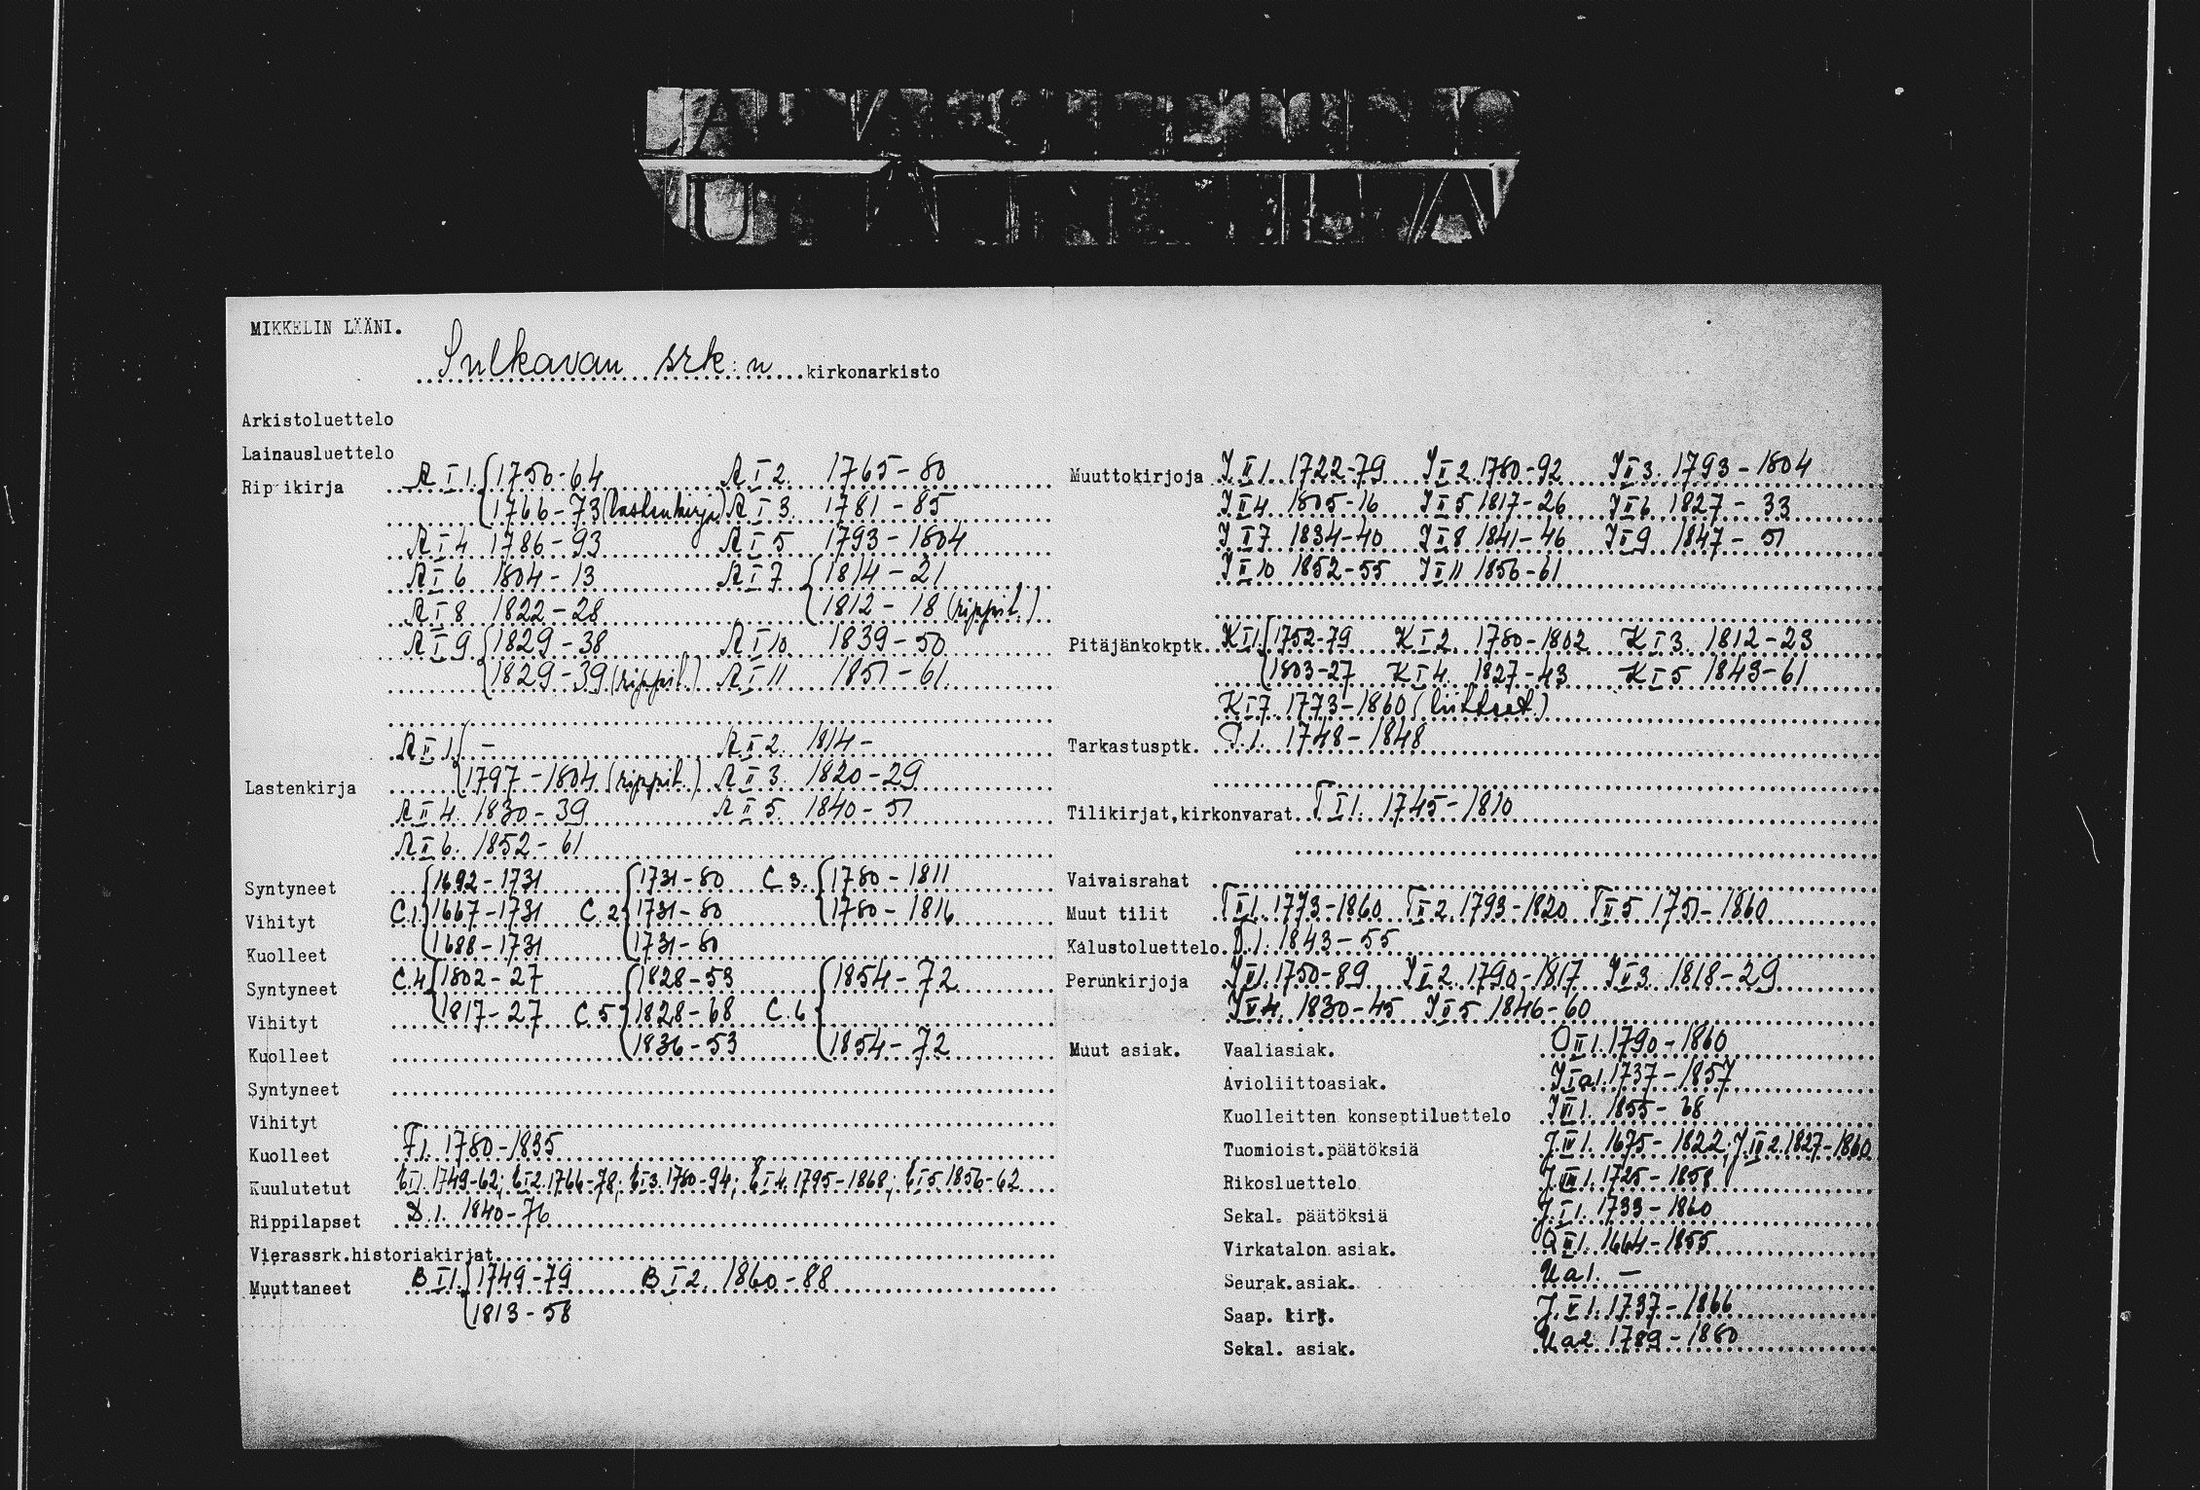 MIKKELIN LÄÄNI.
Sulkavan srk:n kirkonarkisto
Arkistoluettelo
Lainausluettelo
Rippikirja A I 1. 1756-64 A I 2. 1765-80
1766-73 (lastenkirja) A I 3. 1781-85
A I 4 1786-93 A I 5 1793-1804
A I 6 1804-13 A I 7 1814-21
A I 8 1822-28 1812-18 (rippil.)
A I 9 1829-38 A I 10 1839-50
1829-39 (rippil.) A I 11 1851-61
A II 1. - A II 2. 1814-
Lastenkirja 1797-1804 (rippil.) A II 3. 1820-29
A II 4. 1830-39 A II 5. 1840-51
A II 6. 1852-61
Syntyneet 1692-1731 1731-80 C.3. 1780-1811
Vihityt C.1. 1667-1731 C.2 1731-80 1780-1816
Kuolleet 1688-1731 1731-80
Syntyneet C.4 1802-27 1828-53 1854-72
Vihityt 1817-27 C.5 1828-68 C.6
Kuolleet 1836-53 1854-72
Syntyneet
Vihityt
Kuolleet F.1. 1780-1835
Kuulutetut E I 1. 1749-62; E I 2. 1766-78; E I 3. 1780-94; E I 4. 1795-1868; E I 5 1856-62
Rippilapset D.1. 1840-76
Vierassrk.historiakirjat
Muuttaneet B I 1. 1749-79 B I 2. 1860-88
1813-58
Muuttokirjoja J II 1. 1722-79 J II 2. 1780-92 J II 3. 1793-1804
J II 4 1805-16 J II 5 1817-26 J II 6. 1827-33
J II 7 1834-40 J II 8 1841-46 J II 9 1847-51
J II 10 1852-55 J II 11 1856-61
Pitäjänkokptk. K I 1. 1752-79 K I 2. 1780-1802 K I 3. 1812-23
1803-27 K I 4. 1827-43 K I 5 1843-61
K I 7. 1773-1860 (liitteet.)
Tarkastusptk. P.1. 1748-1848
Tilikirjat,kirkonvarat. T I 1. 1745-1810
Vaivaisrahat
Muut tilit T II 1. 1773-1860 T II 2. 1793-1820 T II 5 1751-1860
Kalustoluettelo 1843-55
Perunkirjoja 1750-89 1790-1817 1818-29
1830-45 1846-60
Muut asiak. Vaaliasiak. O II 1. 1790-1860
Avioliittoasiak. J I a 1. 1737-1857
Kuolleitten konseptiluettelo 1855-68
Tuomioist.päätöksiä 1675-1822, 1827-1860
Rikosluettelo 1725-1858
Sekal. päätöksiä 1733-1860
Virkatalon asiak. 1664-1855
Seurak.asiak. U a 1. -
Saap. kirj. 1737-1866
Sekal. asiak. U a 2 1789-1860